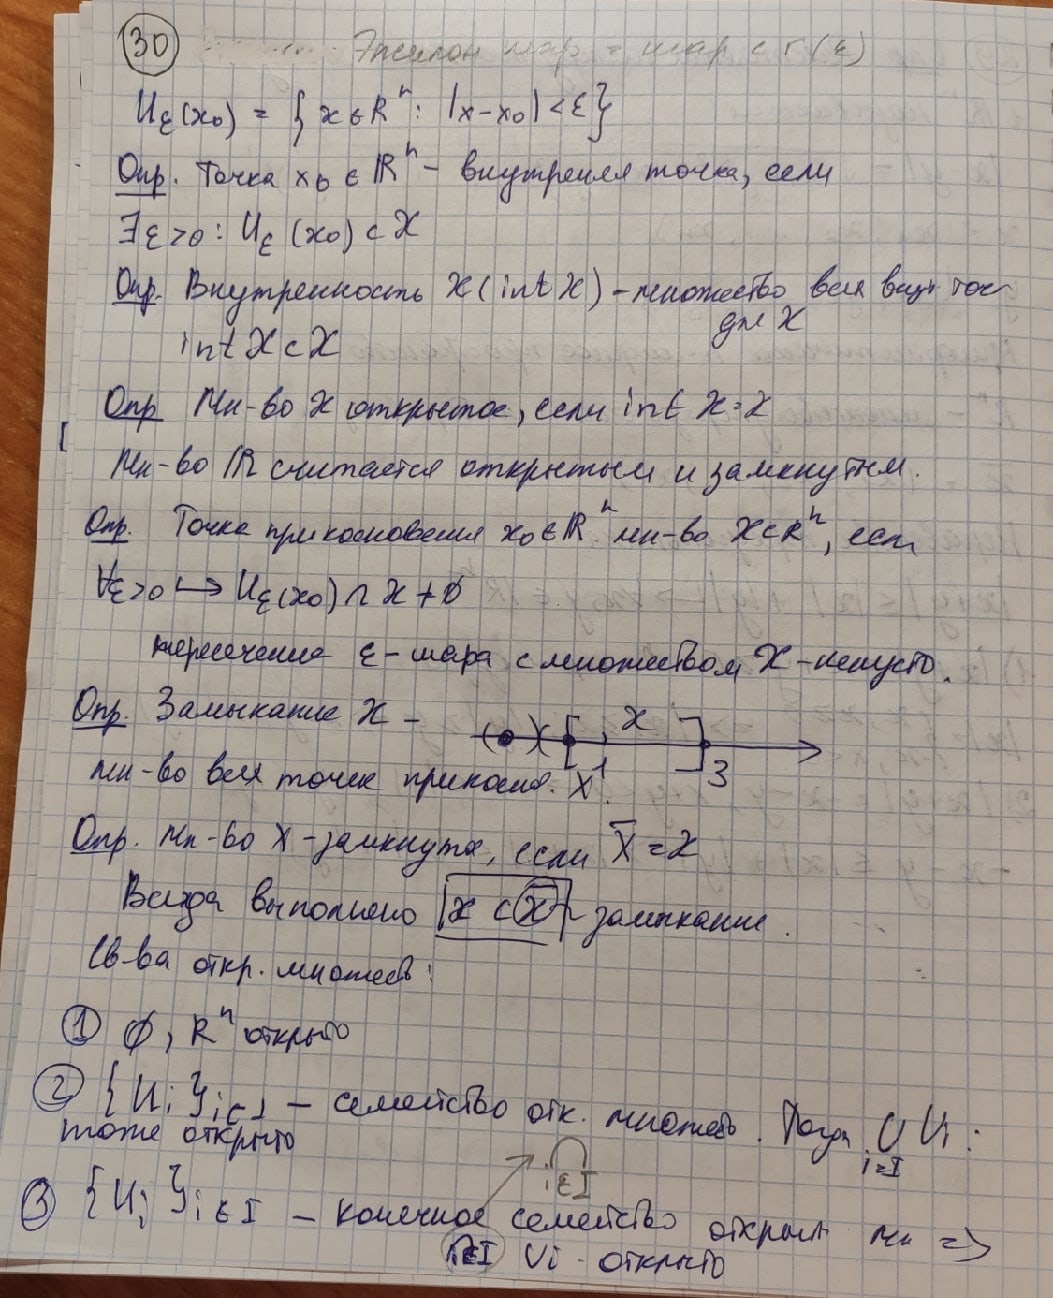 30 Эпсилон шар = шар с r(ε)
U_ε(x₀) = { x ∈ ℝⁿ : |x-x₀| < ε}
Опр. Точка x₀ ∈ ℝⁿ - внутреняя точка, если
∃ε>0 : U_ε(x₀) ⊂ X
Опр. Внутренность X (int X) - множество всех внут точ
для X
int X ⊂ X
Опр Мн-во X открытое, если int X = X
Мн-во ℝ считается открытым и замкнутым.
Опр. Точка прикосновения x₀ ∈ ℝⁿ мн-во X ⊂ Rⁿ, если
∀ε>0 ↦ U_ε(x₀) ∩ X ≠ ∅
пересечение ε-шара с множеством X - непусто.
Опр. Замыкание X -
( ) [ X ]
1 3
мн-во всех точек прикосн. X.
Опр. Мн-во X - замкнуто, если X̅ = X
Всегда выполнено X ⊂ X̅ замыкание.
Св-ва откр. множеств:
① ∅, Rⁿ открыто
② {U_i}_{i∈I} - семейство отк. множеств. Тогда ∪_{i=I} U_i :
тоже открыто
∩_{i∈I}
③ {U_i}_{i∈I} - конечное семейство открыт мн =>
∩∈I U_i - открыто